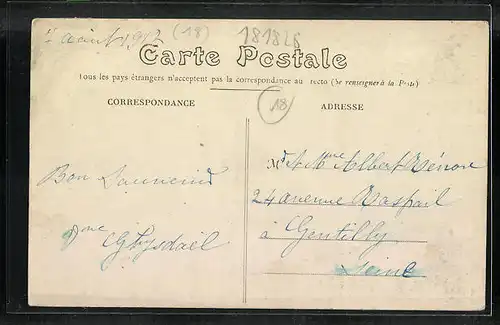 août 1912 (18) 181828
Carte Postale
Tous les pays étrangers n'acceptent pas la correspondance au recto (Se renseigner à la Poste)
CORRESPONDANCE
18
ADRESSE
Bon Souvenir
Mme Ghysdaël
M. et Mme Albert Ménore
24 avenue Raspail
à Gentilly
Seine